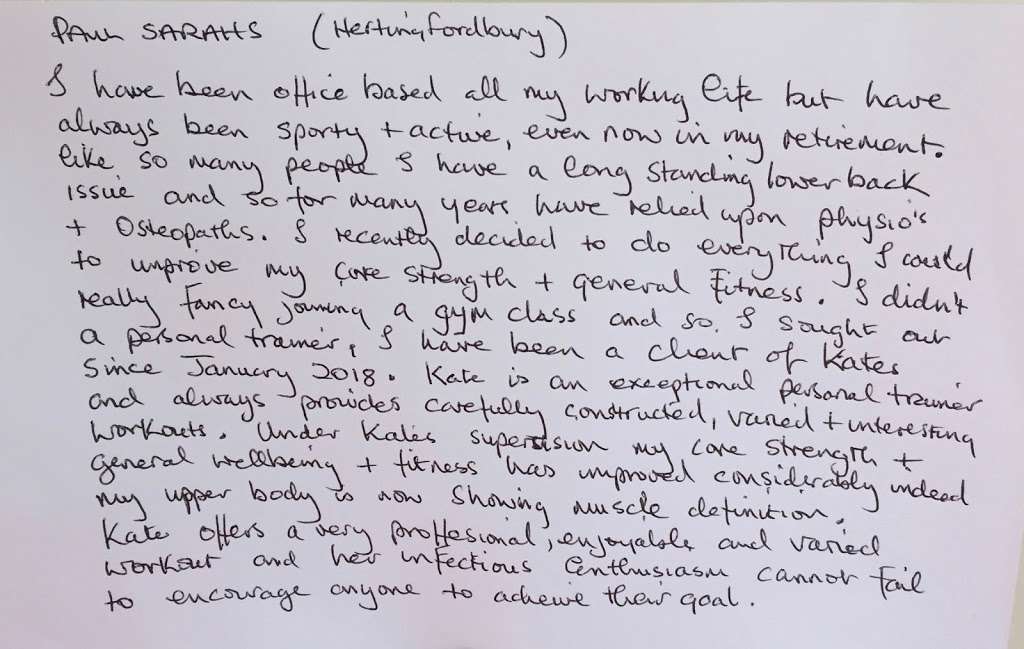 PAUL SARAHS (Hertingfordbury)
I have been office based all my working life but have
always been sporty + active, even now in my retirement.
like so many people I have a long standing lower back
issue and so for many years have relied upon physio's
+ Osteopaths. I recently decided to do everything I could
to improve my core strength + general fitness. I didn't
really fancy joining a gym class and so I sought out
a personal trainer, I have been a client of Kates
Since January 2018. Kate is an exceptional personal trainer
and always provides carefully constructed, varied + interesting
workouts. Under Kates supervision my core strength +
general wellbeing + fitness has improved considerably indeed
my upper body is now showing muscle definition.
Kate offers a very proffesional, enjoyable and varied
workout and her infectious enthusiasm cannot fail
to encourage anyone to acheive their goal.